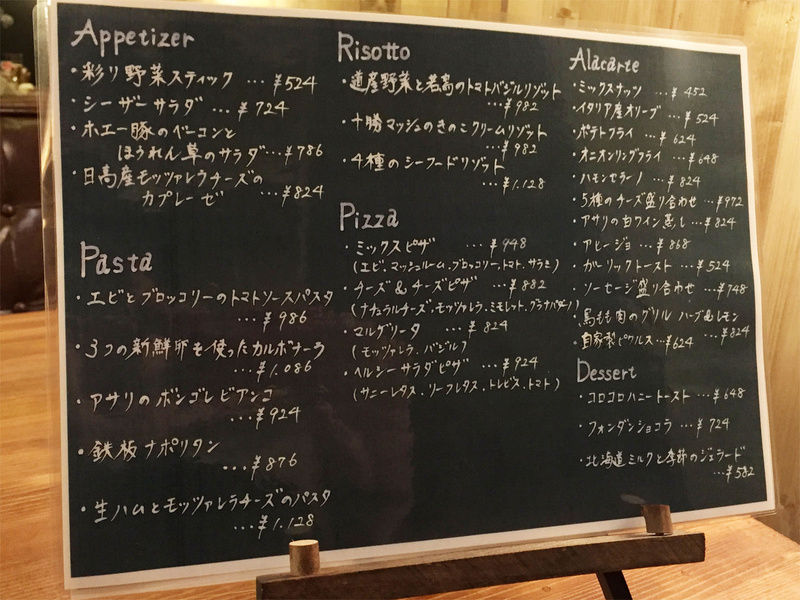 Appetizer
・彩り野菜スティック …¥524
・シーザーサラダ …¥724
・ホエー豚のベーコンと
ほうれん草のサラダ…¥786
・日高産モッツァレラチーズの
カプレーゼ …¥824
Pasta
・エビとブロッコリーのトマトソースパスタ
…¥986
・3つの新鮮卵を使ったカルボナーラ
…¥1.086
・アサリのボンゴレビアンコ
…¥924
・鉄板ナポリタン
…¥876
・生ハムとモッツァレラチーズのパスタ
…¥1.128
Risotto
・道産野菜と若鶏のトマトバジルリゾット
…¥982
・十勝マッシュのきのこクリームリゾット
…¥982
・4種のシーフードリゾット
…¥1.128
Pizza
・ミックスピザ …¥948
(エビ、マッシュルーム、ブロッコリー、トマト、サラミ)
・チーズ&チーズピザ …¥882
(ナチュラルチーズ、モッツァレラ、ミモレット、グラナパダーノ)
・マルゲリータ …¥824
(モッツァレラ、バジル)
・ヘルシーサラダピザ …¥924
(サニーレタス、リーフレタス、トレビス、トマト)
Alacarte
・ミックスナッツ …¥452
・イタリア産オリーブ …¥524
・ポテトフライ …¥624
・オニオンリングフライ …¥648
・ハモンセラーノ …¥824
・5種のチーズ盛り合わせ …¥972
・アサリの白ワイン蒸し …¥824
・アヒージョ …¥868
・ガーリックトースト …¥524
・ソーセージ盛り合わせ …¥748
・鶏もも肉のグリル ハーブ&レモン
…¥824
・自家製ピクルス…¥624
Dessert
・コロコロハニートースト …¥648
・フォンダンショコラ …¥724
・北海道ミルクと季節のジェラード
…¥582